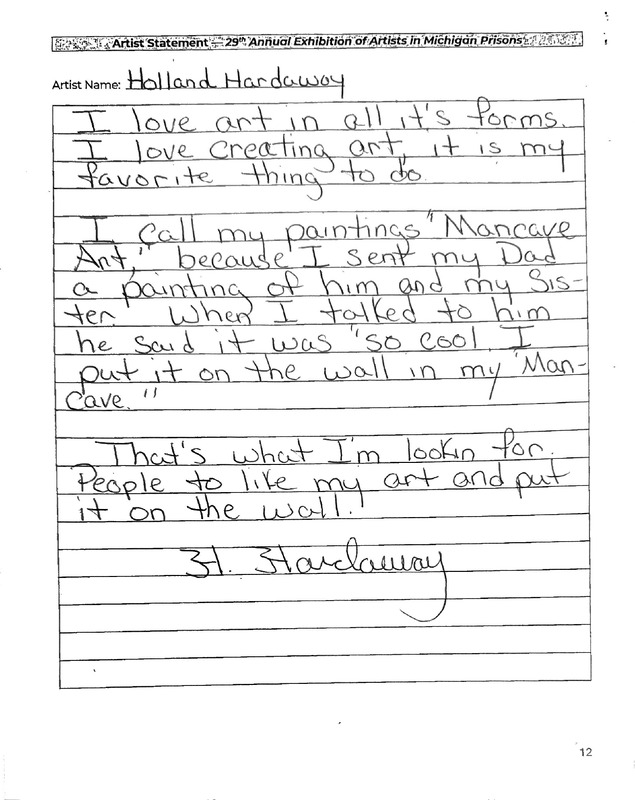 Artist Statement — 29th Annual Exhibition of Artists in Michigan Prisons
Artist Name: Holland Hardaway
I love art in all it's forms.
I love creating art, it is my
favorite thing to do.
I call my paintings "Mancave
Art," because I sent my Dad
a painting of him and my Sis-
ter. When I talked to him
he said it was "so cool I
put it on the wall in my 'Man-
Cave."
That's what I'm lookin for.
People to like my art and put
it on the wall!
H. Hardaway
12